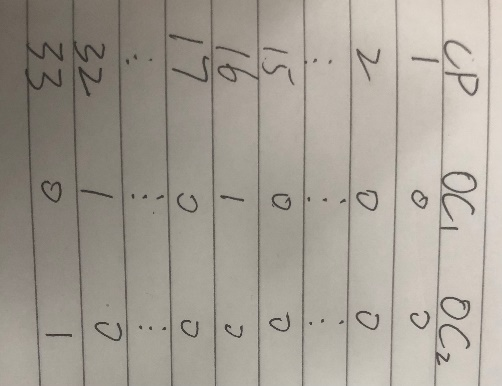 CP OC1 OC2
1 0 0
2 0 0
⋮ ⋮ ⋮
15 0 0
16 1 0
17 0 0
⋮ ⋮ ⋮
32 1 0
33 0 1